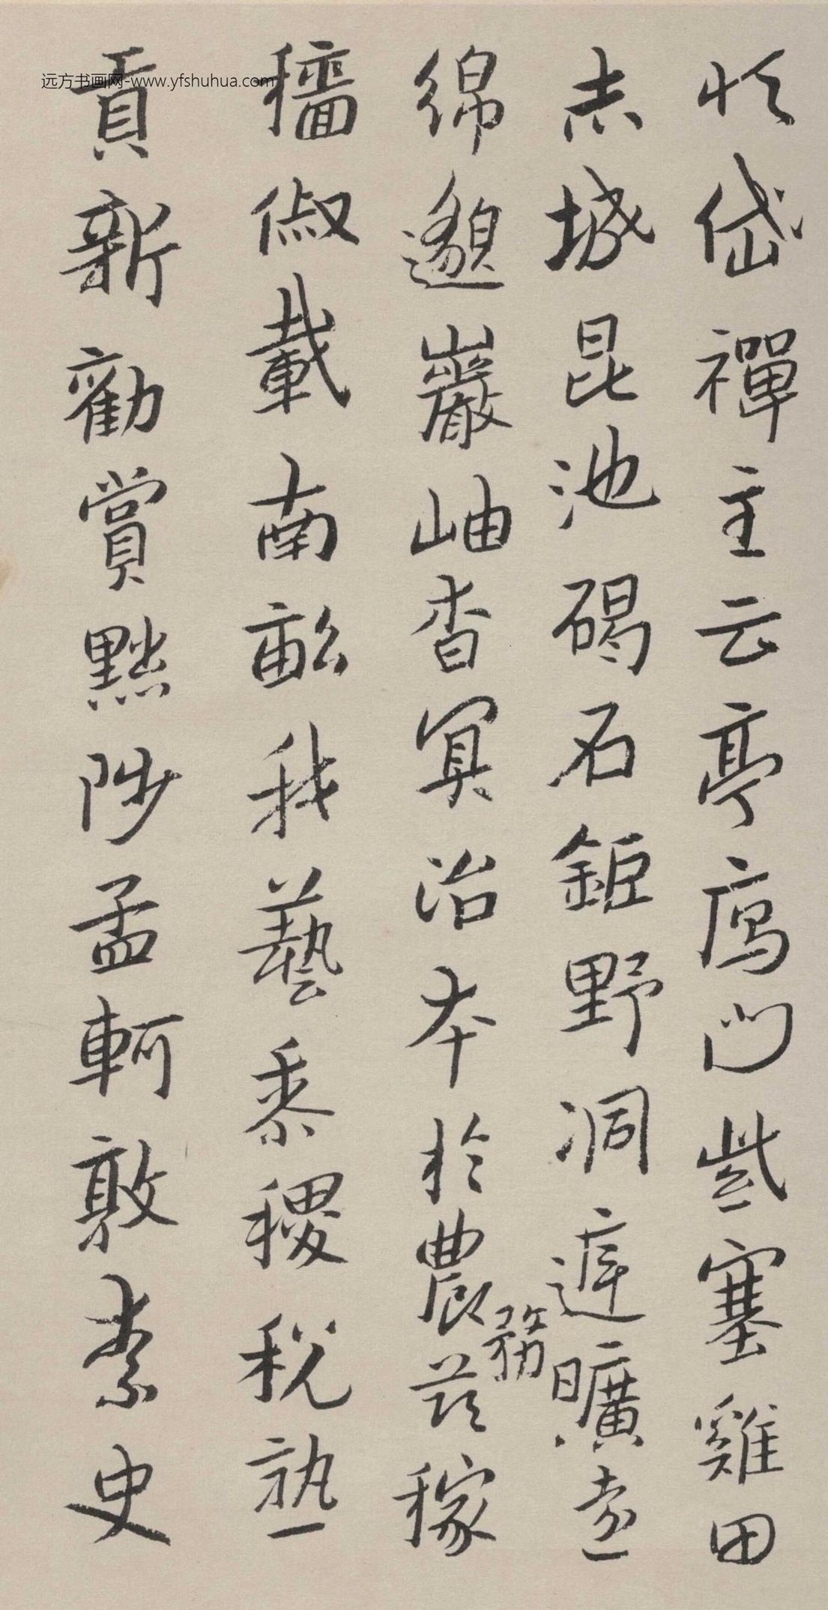 恒岱禪主云亭鴈門紫塞雞田
赤城昆池碣石鉅野洞庭曠遠
綿邈巖岫杳冥治本於農務茲稼
穡俶載南畝我藝黍稷稅熟
貢新勸賞黜陟孟軻敦素史
远方书画网-www.yfshuhua.com